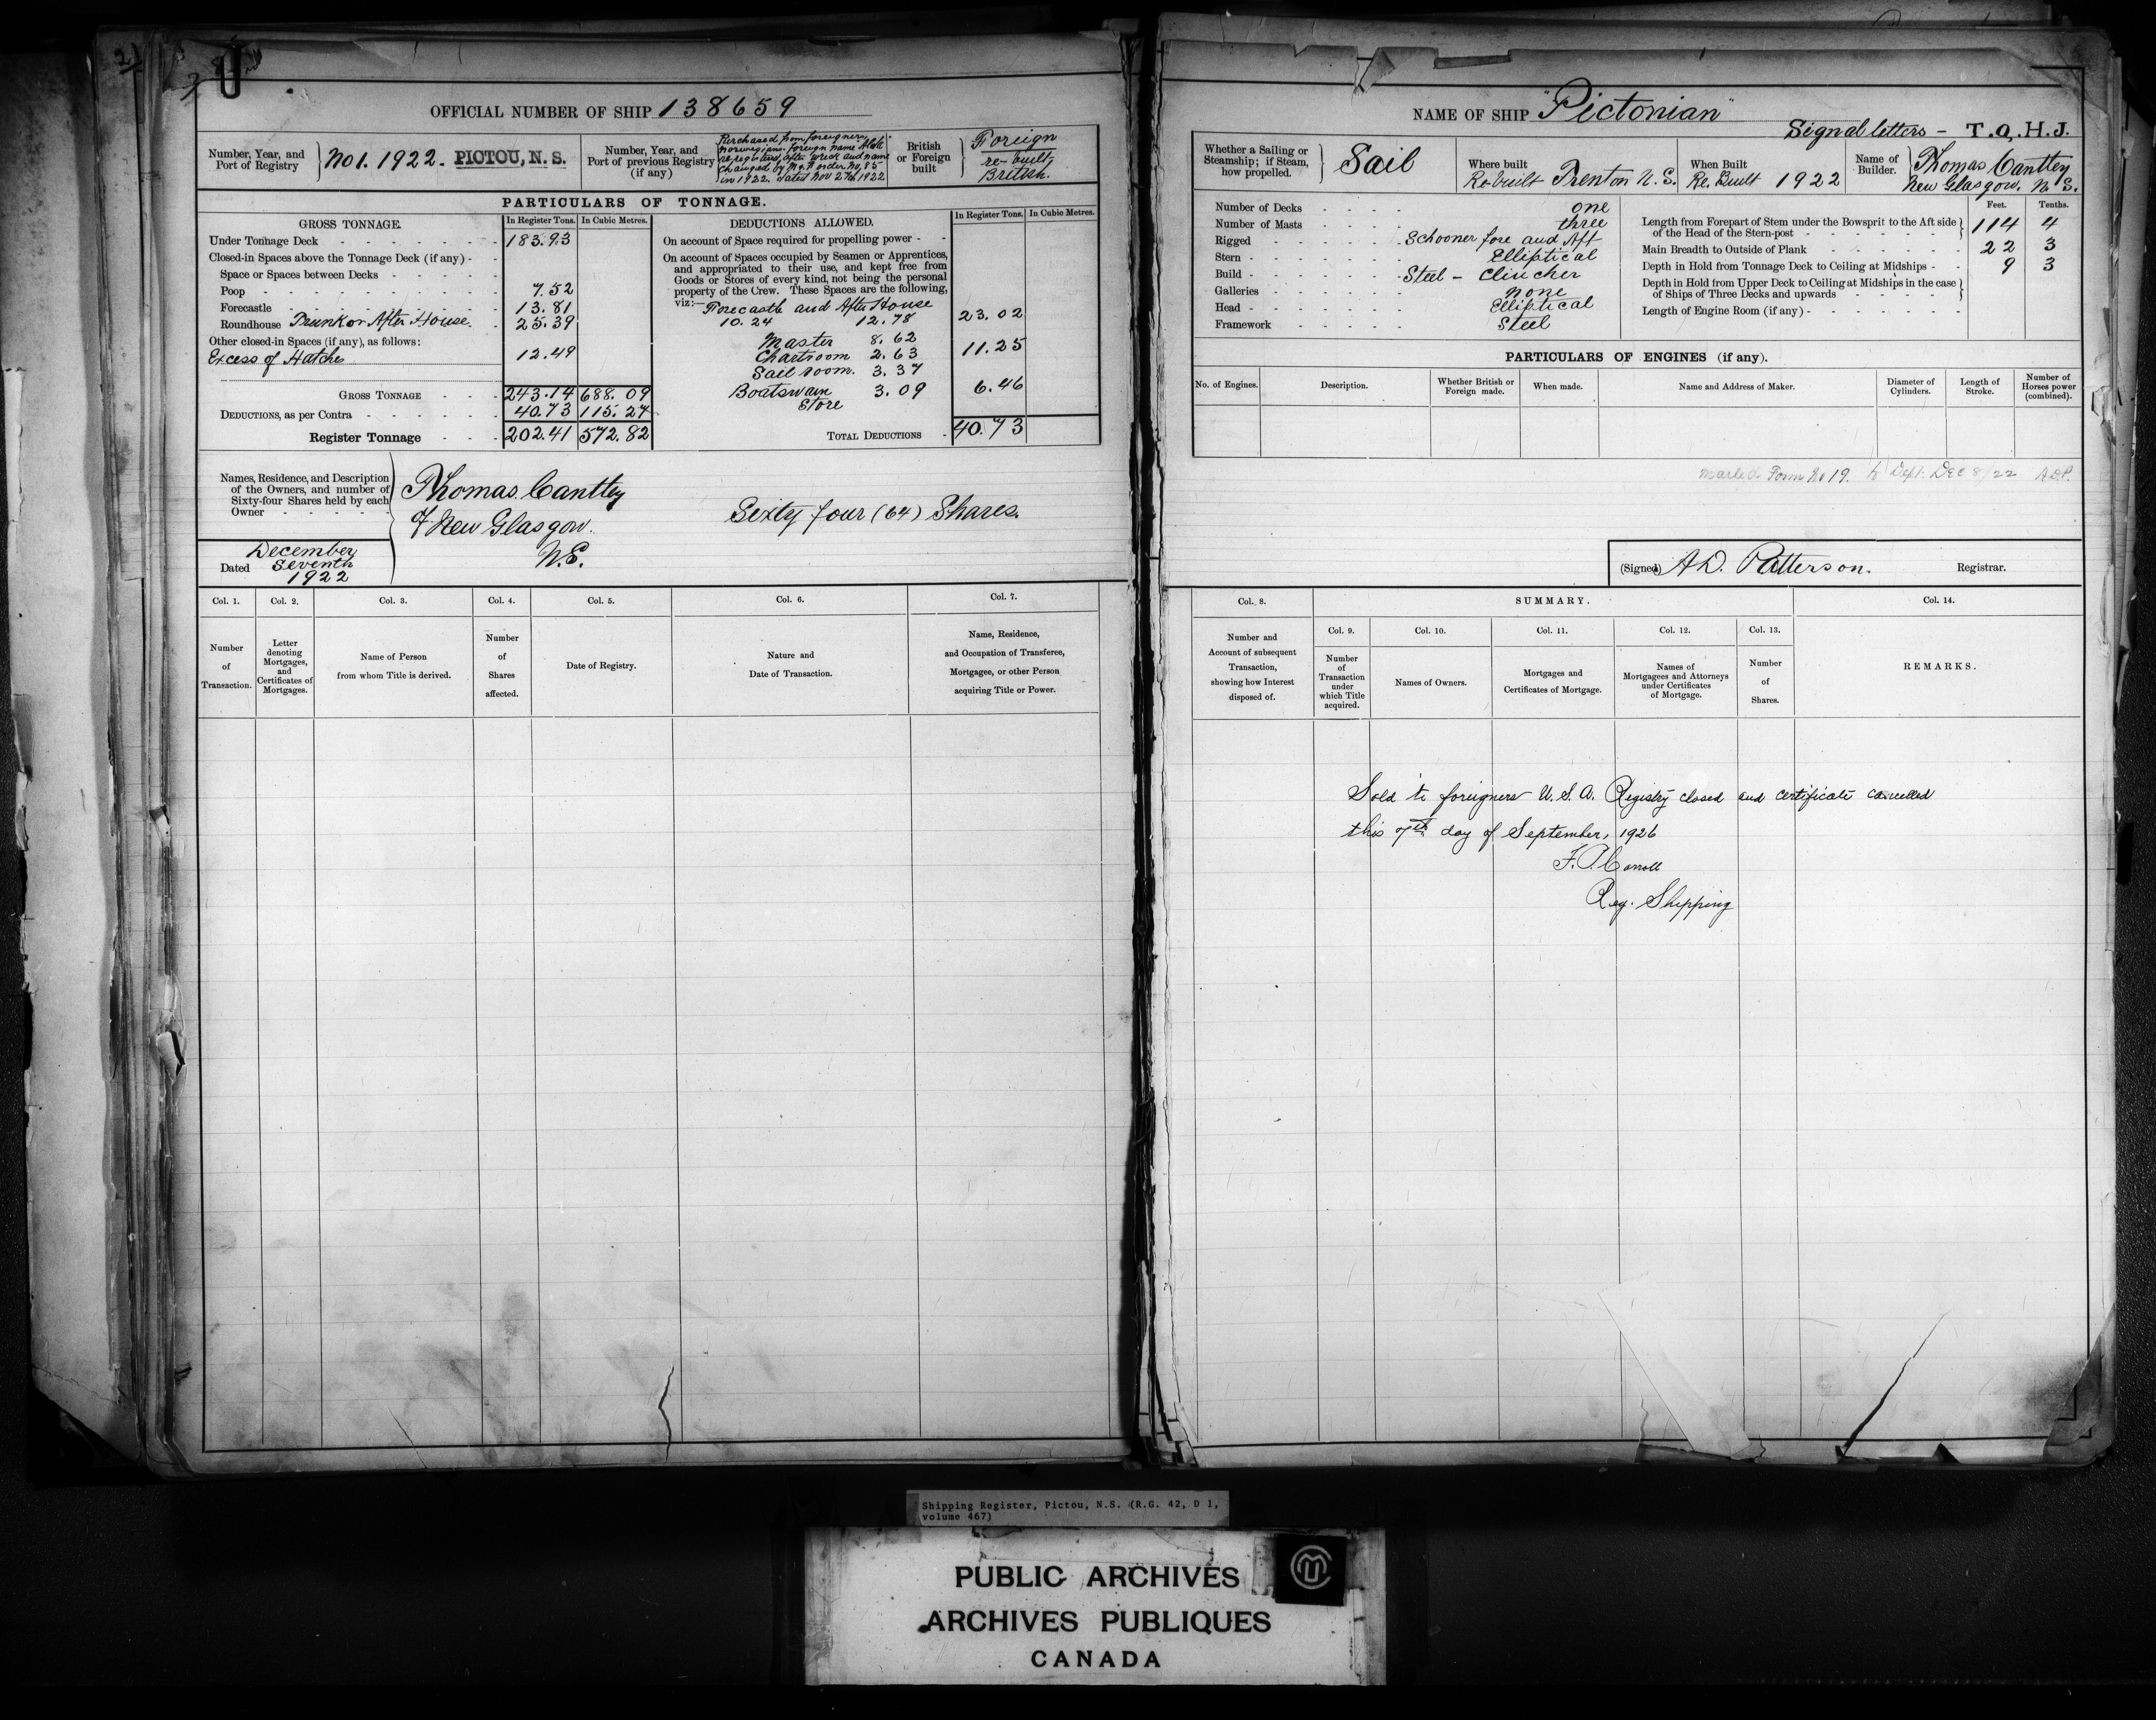 OFFICIAL NUMBER OF SHIP 138659
Number, Year, and Port of Registry } No 1. 1922. PICTOU, N. S.
Number, Year, and Port of previous Registry (if any)
Purchased from foreigners
norwegian foreign name
re-registered after wreck and name
changed by M. & F. order No. 85
in 1922. dated Nov 27th 1922
British or Foreign built } Foreign
re-built,
British.
PARTICULARS OF TONNAGE.
GROSS TONNAGE. In Register Tons. In Cubic Metres.
Under Tonnage Deck 183.93
Closed-in Spaces above the Tonnage Deck (if any)
Space or Spaces between Decks
Poop 7.52
Forecastle 13.81
Roundhouse Trunk or After House. 25.39
Other closed-in Spaces (if any), as follows:
Excess of Hatches 12.49
GROSS TONNAGE 243.14 688.09
DEDUCTIONS, as per Contra 40.73 115.27
Register Tonnage 202.41 572.82
DEDUCTIONS ALLOWED. In Register Tons. In Cubic Metres.
On account of Space required for propelling power
On account of Spaces occupied by Seamen or Apprentices,
and appropriated to their use, and kept free from
Goods or Stores of every kind, not being the personal
property of the Crew. These Spaces are the following,
viz:— Forecastle and After House
10.24 12.78 23.02
Master 8.62
Chartroom 2.63 11.25
Sail room. 3.37
Boatswain 3.09 6.46
Store
TOTAL DEDUCTIONS 40.73
Names, Residence, and Description
of the Owners, and number of
Sixty-four Shares held by each
Owner
Thomas Cantley
of New Glasgow.
N.S.
Sixty four (64) Shares.
Dated December
Seventh
1922
Col. 1. Col. 2. Col. 3. Col. 4. Col. 5. Col. 6. Col. 7.
Number of Transaction.
Letter denoting Mortgages, and Certificates of Mortgages.
Name of Person from whom Title is derived.
Number of Shares affected.
Date of Registry.
Nature and Date of Transaction.
Name, Residence, and Occupation of Transferee, Mortgagee, or other Person acquiring Title or Power.
NAME OF SHIP "Pictonian"
Signal letters – T.Q.H.J.
Whether a Sailing or Steamship; if Steam, how propelled. } Sail
Where built
Re-built Trenton N.S.
When Built
Re. Built 1922
Name of Builder. } Thomas Cantley
New Glasgow. N. S.
Number of Decks one
Number of Masts three
Rigged Schooner fore and Aft
Stern Elliptical
Build Steel – Clincher
Galleries none
Head Elliptical
Framework Steel
Feet. Tenths.
Length from Forepart of Stem under the Bowsprit to the Aft side
of the Head of the Stern-post 114 4
Main Breadth to Outside of Plank 22 3
Depth in Hold from Tonnage Deck to Ceiling at Midships 9 3
Depth in Hold from Upper Deck to Ceiling at Midships in the case
of Ships of Three Decks and upwards
Length of Engine Room (if any)
PARTICULARS OF ENGINES (if any).
No. of Engines. Description. Whether British or Foreign made. When made. Name and Address of Maker. Diameter of Cylinders. Length of Stroke. Number of Horses power (combined).
Mailed Form No 19. to Dept. Dec 8/22 A.D.P.
(Signed) A.D. Patterson. Registrar.
Col. 8. SUMMARY. Col. 14.
Col. 9. Col. 10. Col. 11. Col. 12. Col. 13.
Number and Account of subsequent Transaction, showing how Interest disposed of.
Number of Transaction under which Title acquired.
Names of Owners.
Mortgages and Certificates of Mortgage.
Names of Mortgagees and Attorneys under Certificates of Mortgage.
Number of Shares.
REMARKS.
Sold to foreigners U.S.A. Registry closed and certificate cancelled
this 7th day of September, 1926
F. P. Carroll
Reg. Shipping
Shipping Register, Pictou, N.S. (R.G. 42, D 1,
volume 467)
PUBLIC ARCHIVES
ARCHIVES PUBLIQUES
CANADA